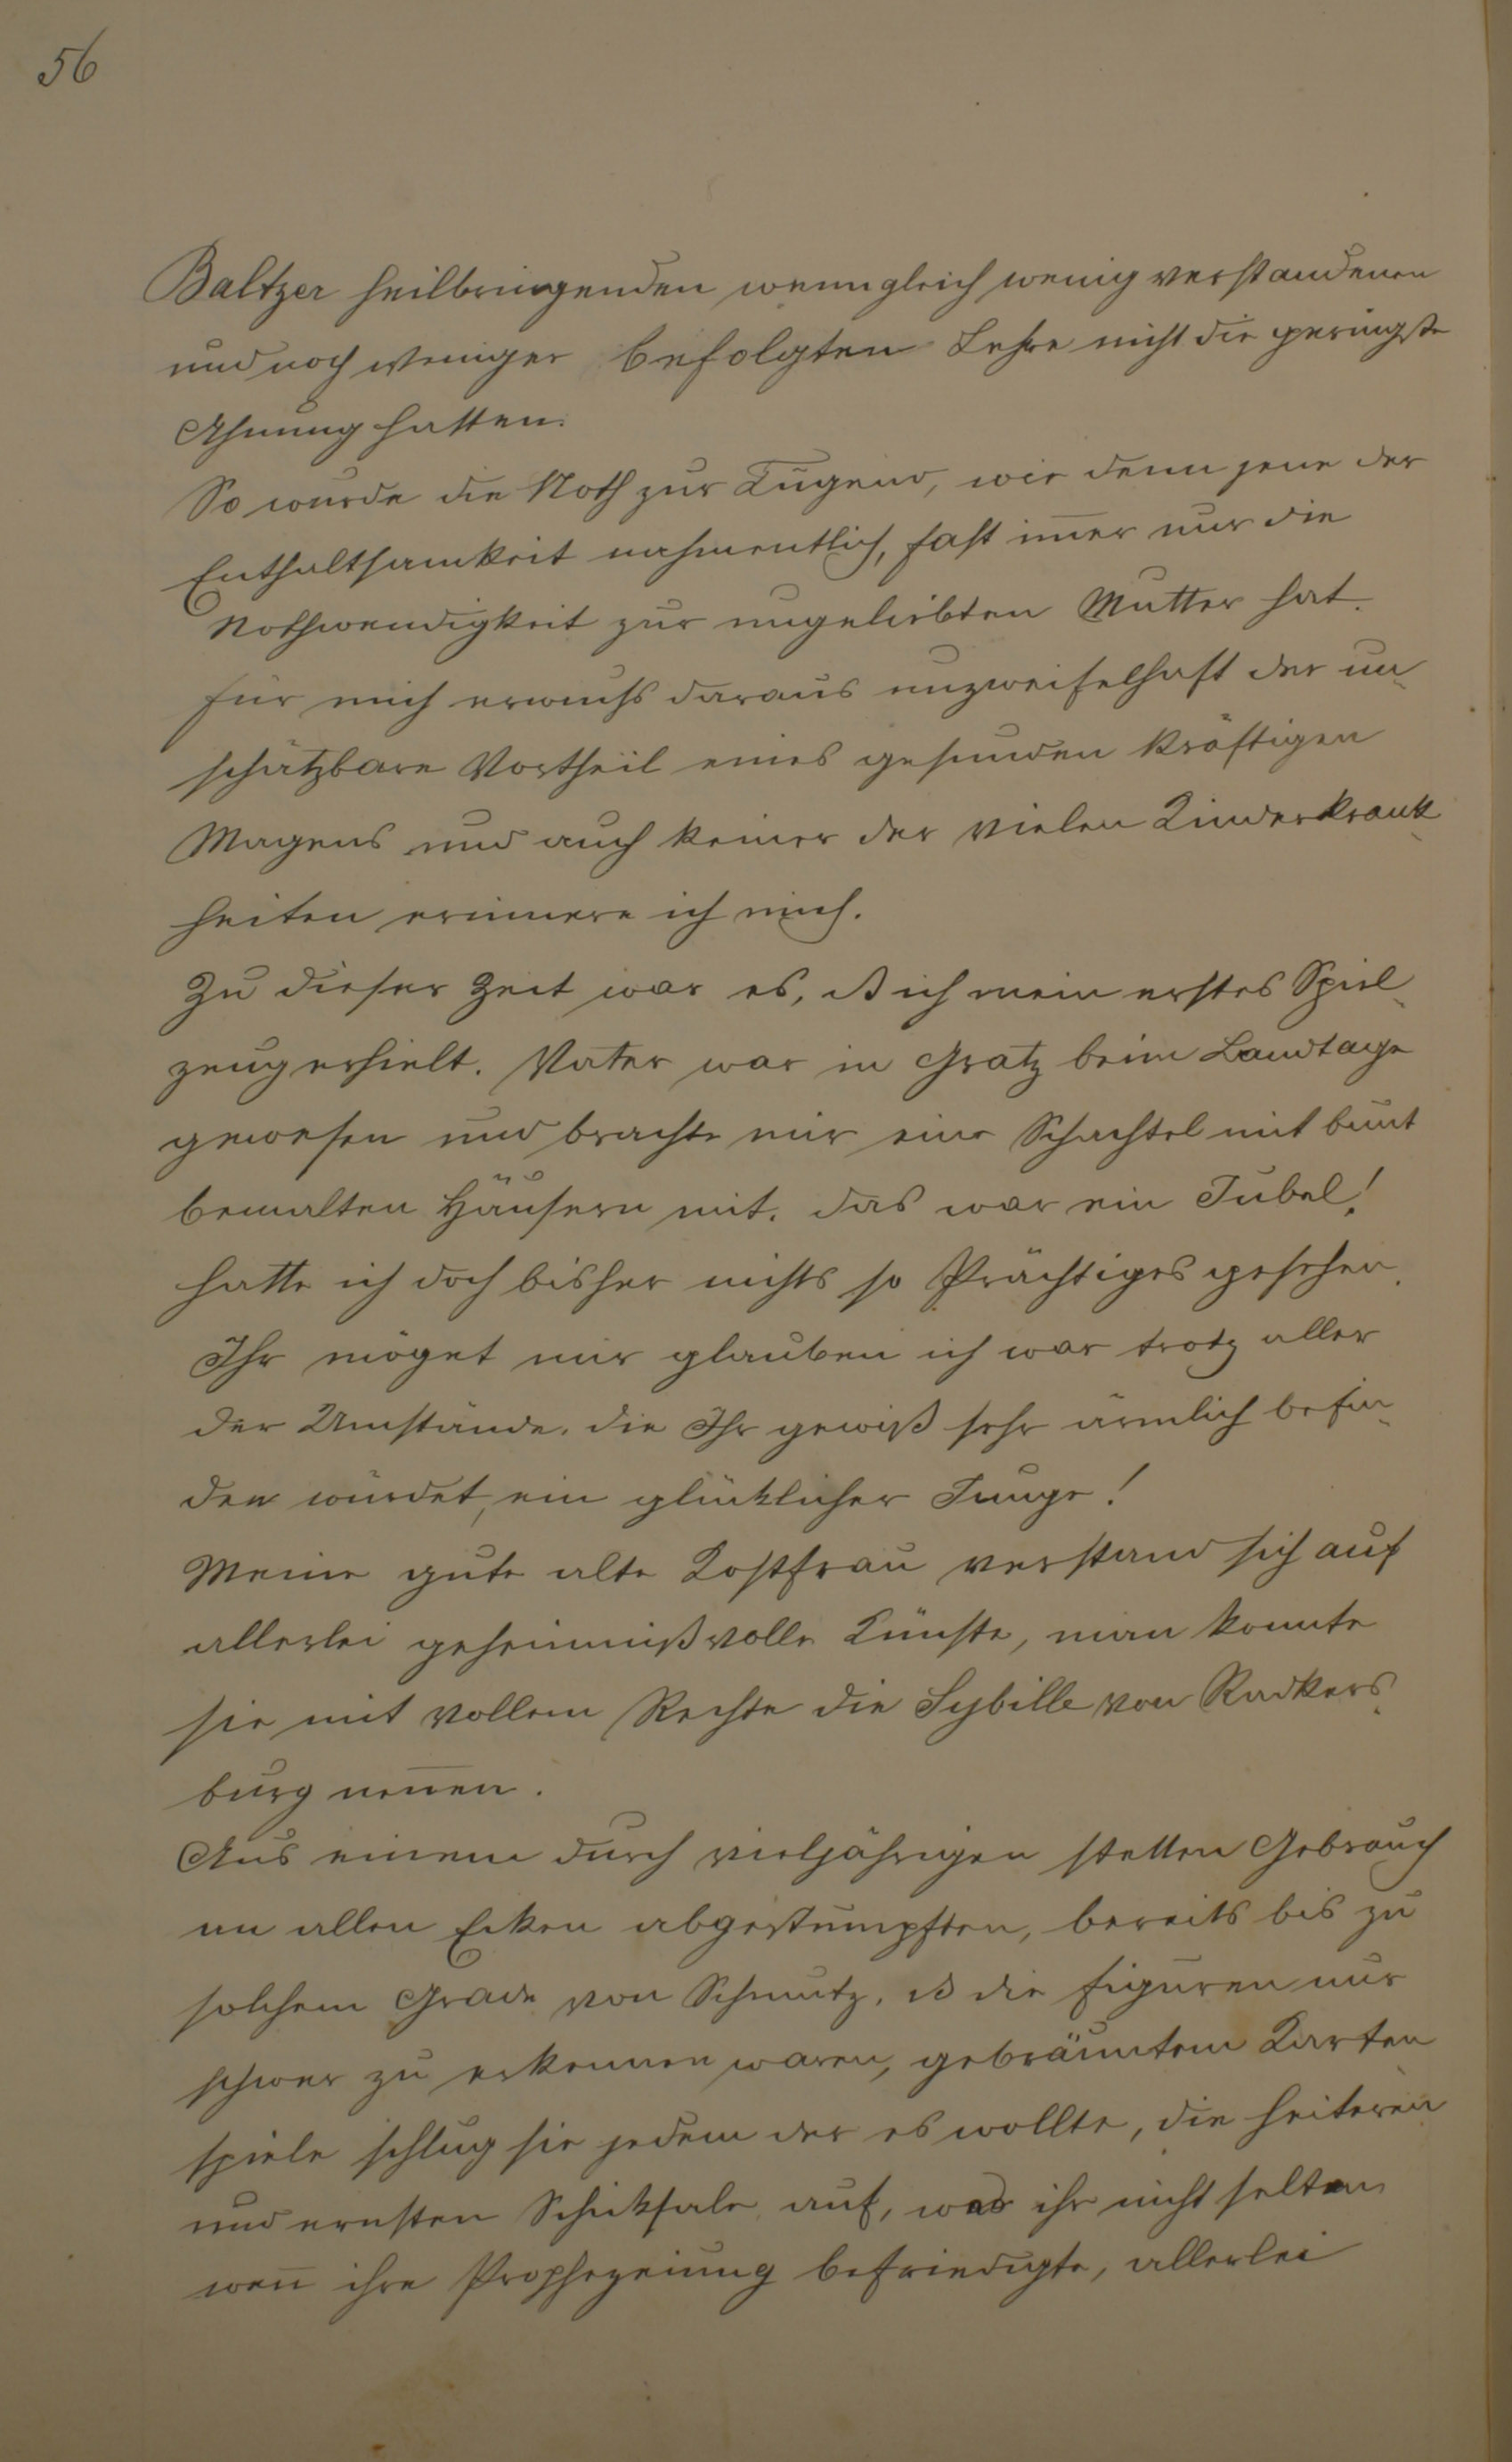 56
Baltzer heilbringenden wenngleich wenig verstandenen
und noch weniger befolgten Lehre nicht die geringste
Ahnung hatten.
So wurde die Noth zur Tugend, wie denn jene der
Enthaltsamkeit nahmentlich, fast im̅er nur die
Nothwendigkeit zur ungeliebten Mutter hat.
Für mich erwuchs daraus unzweifelhaft der un-
schätzbare Vortheil eines gesunden kräftigen
Magens und auch keiner der vielen Kinderkrank-
heiten erinnere ich mich.
Zu dieser Zeit war es, ß ich mein erstes Spiel-
zeug erhielt. Vater war in Gratz beim Landtage
gewesen und brachte mir eine Schachtel mit bunt
bemalten Häusern mit. Das war ein Jubel!
hatte ich doch bisher nichts so Prächtiges gesehen.
Ihr möget mir glauben ich war trotz aller
der Umstände, die Ihr gewiß sehr ärmlich befin-
den würdet, ein glücklicher Junge!
Meine gute alte Kostfrau verstand sich auf
allerlei geheimnißvolle Künste, man konnte
sie mit vollem Rechte die Sybille von Radkers-
burg nen̅en.
Aus einem durch vieljährigen stetten Gebrauch
an allen Ecken abgestumpften, bereits bis zu
solchem Grade von Schmutz, ß die Figuren nur
schwer zu erkennen waren, gebräuntem Karten
spiele schlug sie jedem der es wollte, die heiteren
und ernsten Schicksale auf, was ihr nicht selten
wen̅ ihre Prophezeiung befriedigte, allerlei